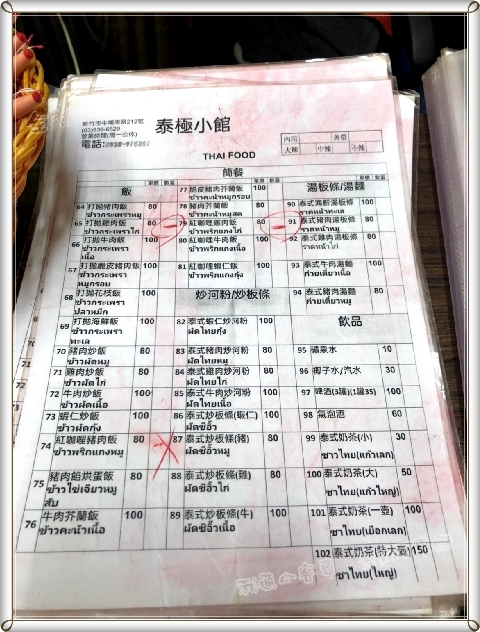 新竹市牛埔南路212號
(03)539-6529
營業時間(周一公休)
電話:
泰極小館
THAI FOOD
內用 外帶
大辣 中辣 小辣
簡餐
飯 單價 數量
64 打拋豬肉飯 80
ข้าวกระเพราหมู
65 打拋雞肉飯 80
ข้าวกระเพราไก่
66 打拋牛肉飯 100
ข้าวกระเพรา
เนื้อ
67 打拋脆皮豬肉飯 100
ข้าวกระเพรา
หมูกรอบ
68 打拋花枝飯 100
ข้าวกระเพรา
ปลาหมึก
69 打拋海鮮飯 100
ข้าวกระเพรา
ทะเล
70 豬肉炒飯 80
ข้าวผัดหมู
71 雞肉炒飯 80
ข้าวผัดไก่
72 牛肉炒飯 100
ข้าวผัดเนื้อ
73 蝦仁炒飯 100
ข้าวผัดกุ้ง
74 紅咖哩豬肉飯 80
ข้าวพริกแกงหมู
75 豬肉餡烘蛋飯 80
ข้าวไข่เจียวหมู
สับ
76 牛肉芥蘭飯 100
ข้าวคะน้าเนื้อ
單價 數量
77 脆皮豬肉芥蘭飯 100
ข้าวคะน้าหมูกรอบ
78 豬肉芥蘭飯 80
ข้าวคะน้าหมูสด
79 紅咖哩雞肉飯 80
ข้าวพริกแกงไก่
80 紅咖哩牛肉飯 100
ข้าวพริกแกงเนื้อ
81 紅咖哩蝦仁飯 100
ข้าวพริกแกงกุ้ง
炒河粉/炒板條
82 泰式蝦仁炒河粉 100
ผัดไทยกุ้ง
83 泰式豬肉炒河粉 80
ผัดไทยหมู
84 泰式雞肉炒河粉 80
ผัดไทยไก่
85 泰式牛肉炒河粉 100
ผัดไทยเนื้อ
86 泰式炒板條(蝦仁) 100
ผัดซีอิ้วกุ้ง
87 泰式炒板條(豬) 80
ผัดซีอิ้วหมู
88 泰式炒板條(雞) 80
ผัดซีอิ้วไก่
89 泰式炒板條(牛) 100
ผัดซีอิ้วเนื้อ
湯板條/湯麵
90 泰式海鮮湯板條 100
ราดหน้าทะเล
91 泰式豬肉湯板條 80
ราดหน้าหมู
92 泰式雞肉湯板條 80
ราดหน้าไก่
93 泰式牛肉湯麵 100
ก๋วยเตี๋ยวเนื้อ
94 泰式豬肉湯麵 80
ก๋วยเตี๋ยวหมู
飲品
95 礦泉水 10
96 椰子水/汽水 30
97 啤酒(3罐)(1罐35) 100
98 氣泡酒 60
99 泰式奶茶(小) 30
ชาไทย(แก้วเล็ก)
100 泰式奶茶(大) 50
ชาไทย(แก้วใหญ่)
101 泰式奶茶(一壺) 100
ชาไทย(เยือกเลก)
102 泰式奶茶(特大壺) 150
ชาไทย(ใหญ่)